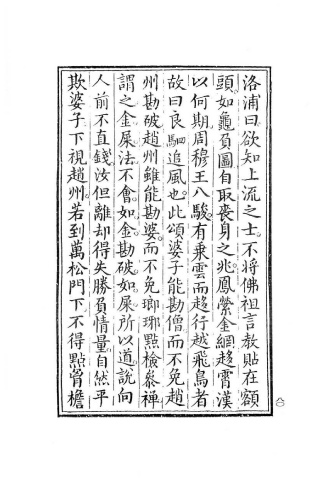 洛浦曰欲知上流之士。不將佛祖言教貼在額
頭。如龜負圖自取喪身之兆。鳳縈金網趍霄漢
以何期周穆王八駿。有乘雲而趍行越飛鳥者
故曰良駟追風也。此頌婆子能勘僧而不免趙
州勘破趙州雖能勘婆。而不免瑯琊㸃檢叅禪
謂之金屎法不會。如金勘破如屎所以道說向
人前不直錢汝但離却得失勝負情量。自然平
欺婆子下視趙州。若到萬松門下不得㸃胷檐